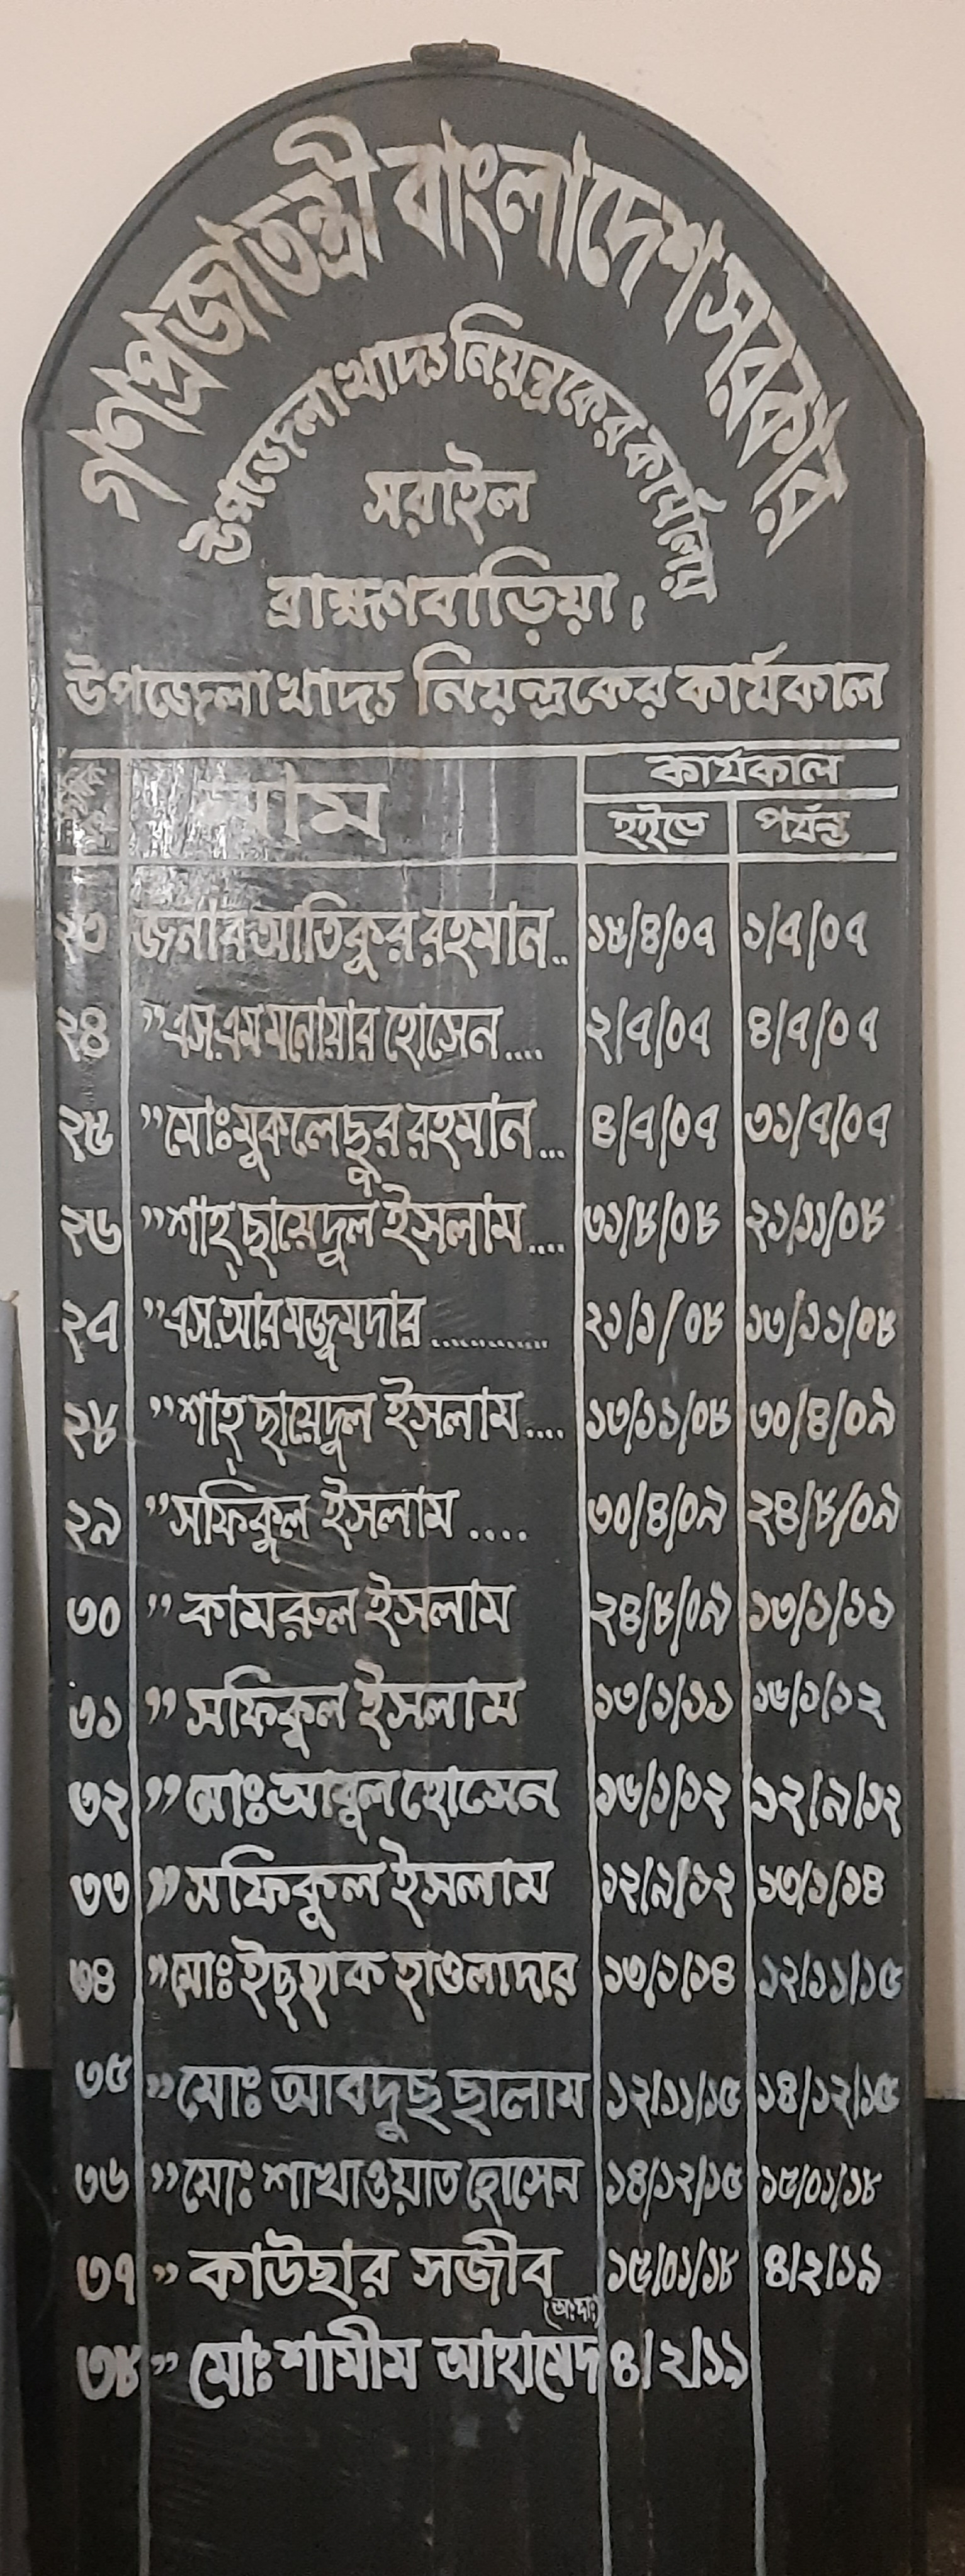 গণপ্রজাতন্ত্রী বাংলাদেশ সরকার
উপজেলা খাদ্য নিয়ন্ত্রকের কার্যালয়
সরাইল
ব্রাহ্মণবাড়িয়া।
উপজেলা খাদ্য নিয়ন্ত্রকের কার্যকাল
নাম কার্যকাল
হইতে পর্যন্ত
২৩ জনাব আতিকুর রহমান.. ১৮/৪/০৭ ১/৭/০৭
২৪ " এস.এম মনোয়ার হোসেন.... ২/৭/০৭ ৪/৭/০৭
২৫ " মোঃ মুকলেছুর রহমান... ৪/৭/০৭ ৩১/৭/০৭
২৬ " শাহ্ ছায়েদুল ইসলাম.... ৩১/৮/০৮ ২১/১১/০৮
২৭ " এস.আর মজুমদার............. ২১/১/০৮ ১৩/১১/০৮
২৮ " শাহ্ ছায়েদুল ইসলাম.... ১৩/১১/০৮ ৩০/৪/০৯
২৯ " সফিকুল ইসলাম .... ৩০/৪/০৯ ২৪/৮/০৯
৩০ " কামরুল ইসলাম ২৪/৮/০৯ ১৩/১/১১
৩১ " সফিকুল ইসলাম ১৩/১/১১ ১৬/১/১২
৩২ " মোঃ আবুল হোসেন ১৬/১/১২ ১২/৯/১২
৩৩ " সফিকুল ইসলাম ১২/৯/১২ ১৩/১/১৪
৩৪ " মোঃ ইছহাক হাওলাদার ১৩/১/১৪ ১২/১১/১৫
৩৫ " মোঃ আবদুছ ছালাম ১২/১১/১৫ ১৪/১২/১৫
৩৬ " মোঃ শাখাওয়াত হোসেন ১৪/১২/১৫ ১৫/০১/১৮
৩৭ " কাউছার সজীব ১৫/০১/১৮ ৪/২/১৯
৩৮ " মোঃ শামীম আহামেদ ৪/২/১৯